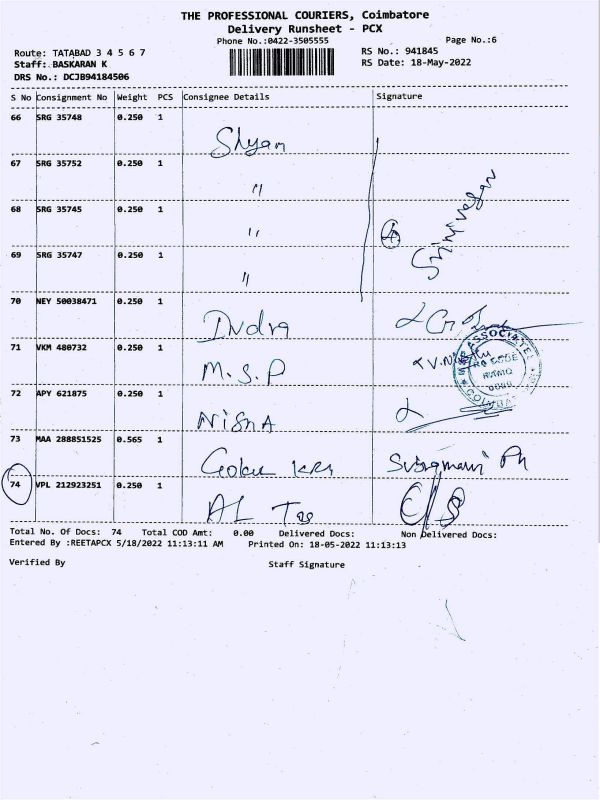 THE PROFESSIONAL COURIERS, Coimbatore
Delivery Runsheet - PCX
Phone No.:0422-3505555
Page No.:6
Route: TATABAD 3 4 5 6 7
RS No.: 941845
Staff: BASKARAN K
RS Date: 18-May-2022
DRS No.: DCJB94184506
S No Consignment No Weight PCS Consignee Details Signature
66 SRG 35748 0.250 1 Shyam
67 SRG 35752 0.250 1 "
68 SRG 35745 0.250 1 " 4 Srinivasan
69 SRG 35747 0.250 1 "
70 NEY 50038471 0.250 1 Indra
71 VKM 480732 0.250 1 M.S.P
72 APY 621875 0.250 1 NISHA
73 MAA 288851525 0.565 1
74 VPL 212923251 0.250 1
Total No. Of Docs: 74 Total COD Amt: 0.00 Delivered Docs: Non Delivered Docs:
Entered By :REETAPCX 5/18/2022 11:13:11 AM Printed On: 18-05-2022 11:13:13
Verified By Staff Signature